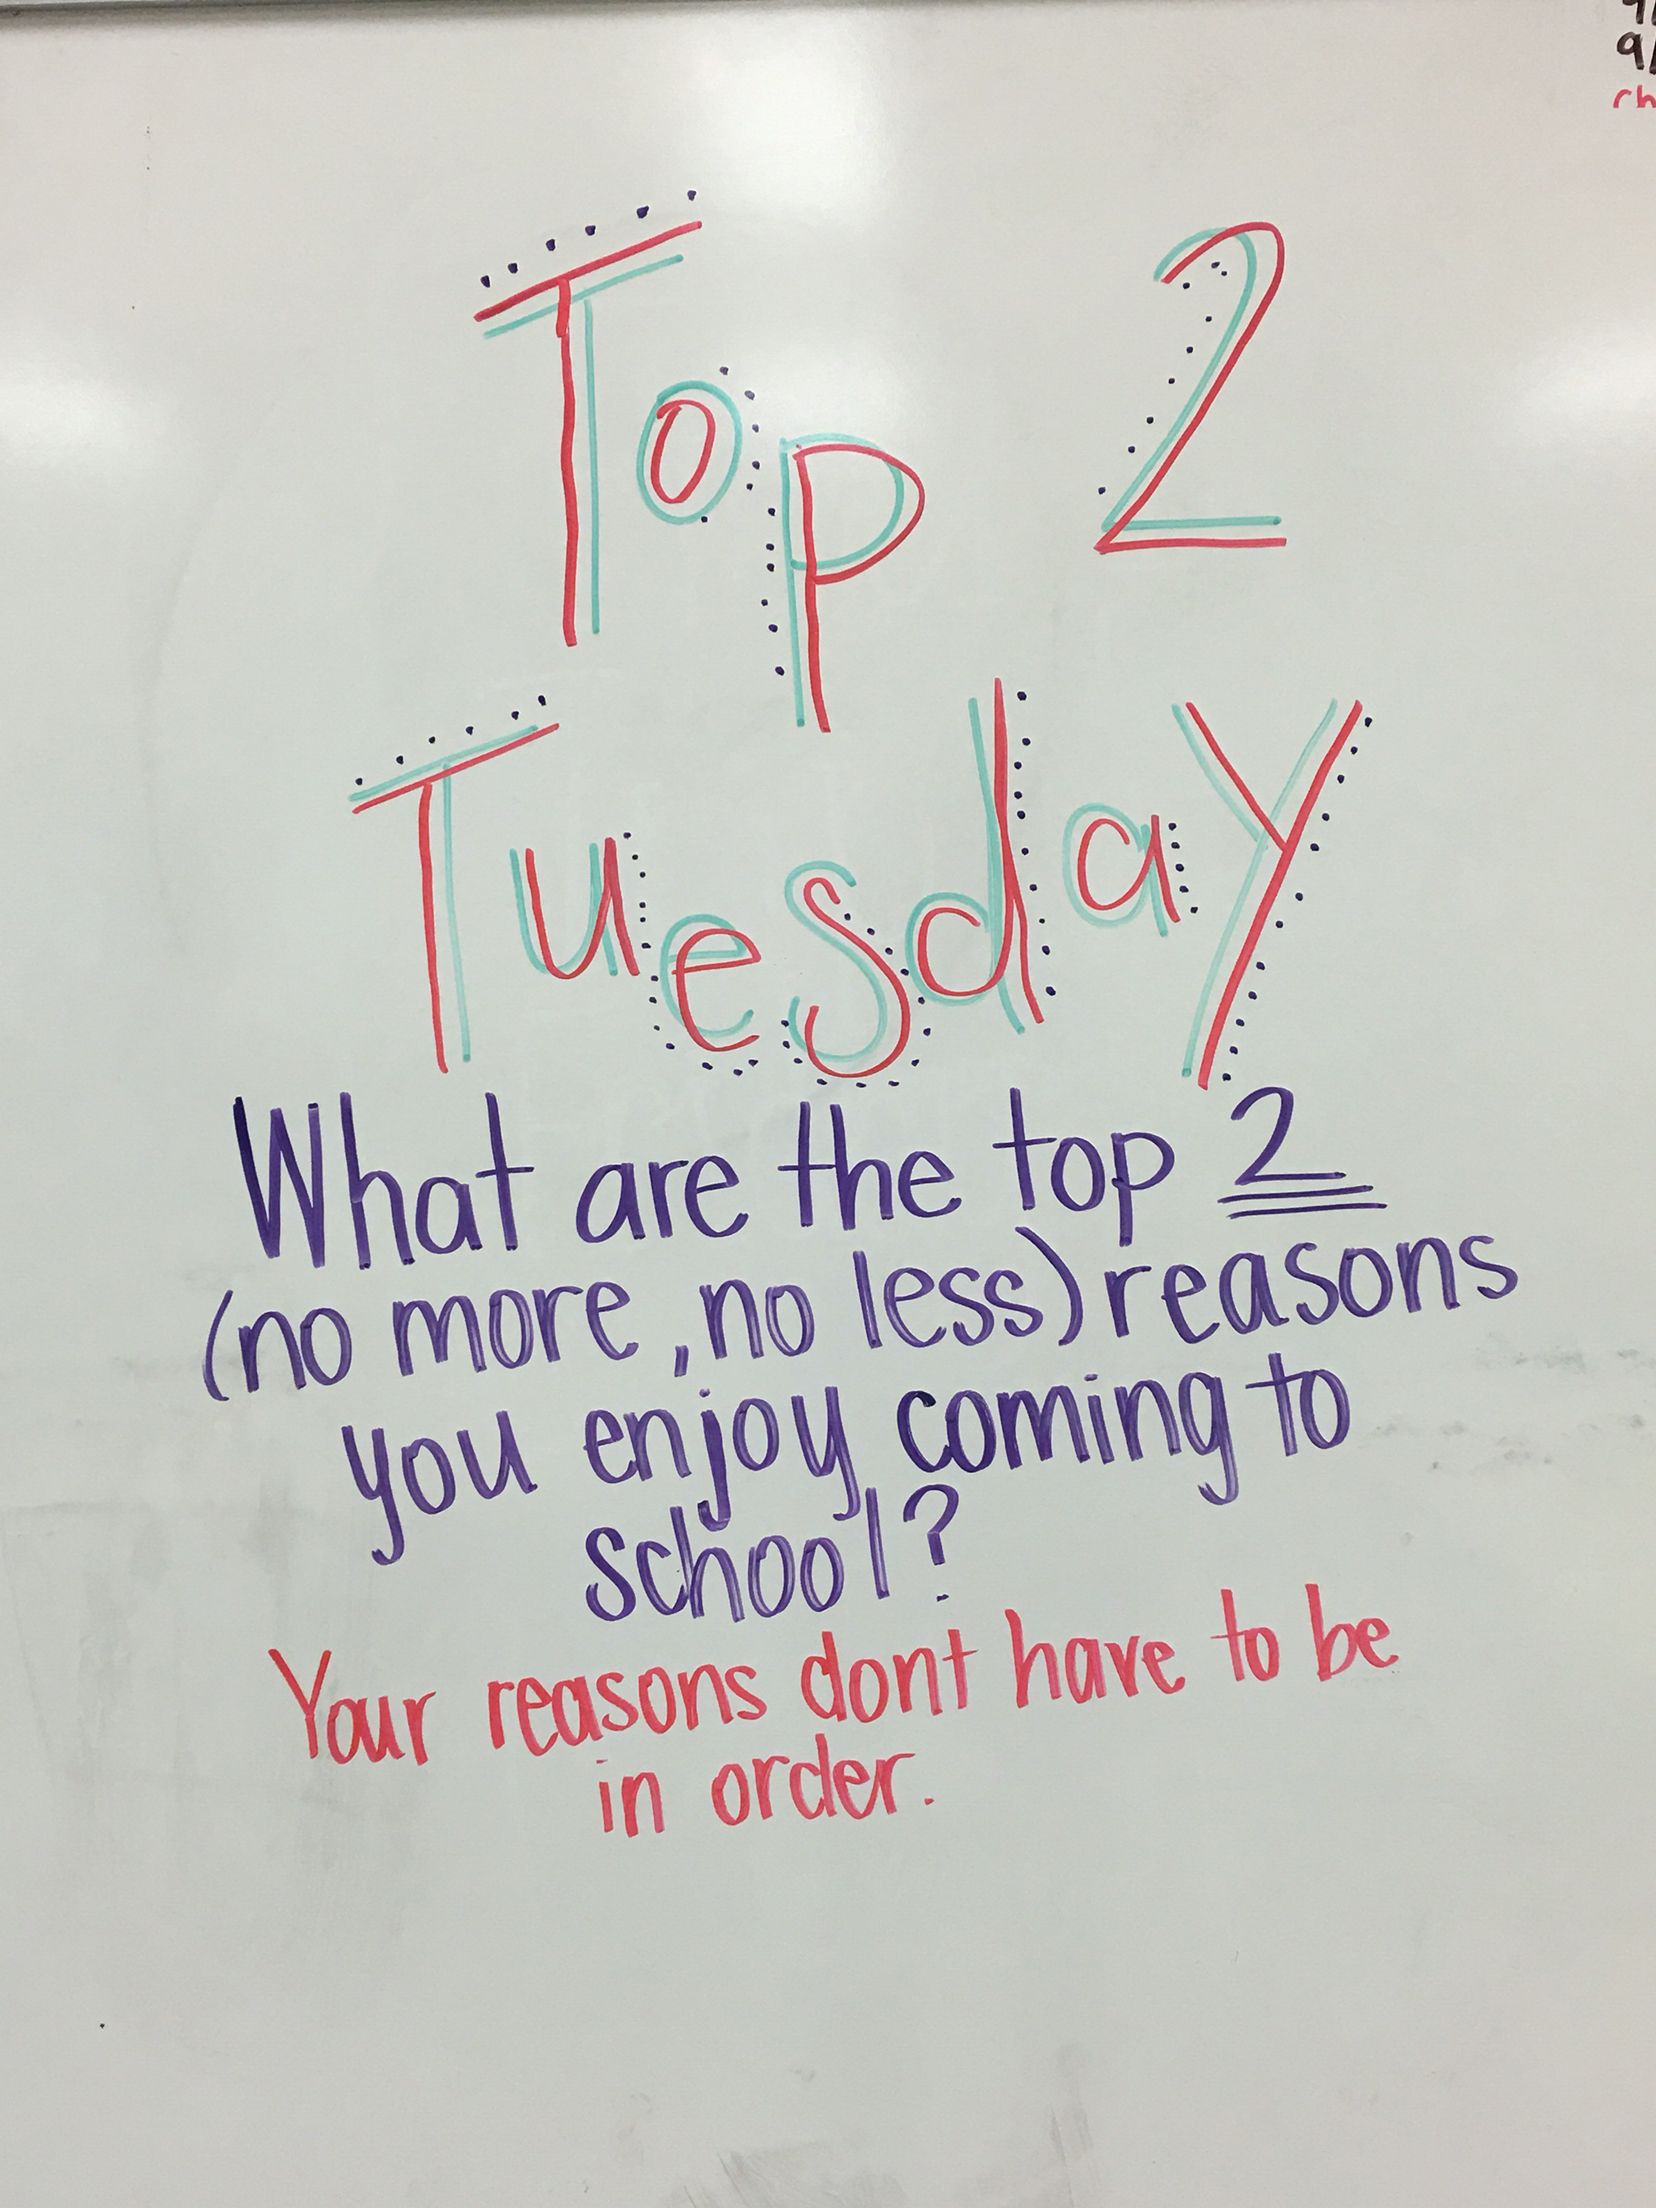 Top 2
Tuesday
What are the top 2
(no more, no less) reasons
you enjoy coming to
school?
Your reasons dont have to be
in order.